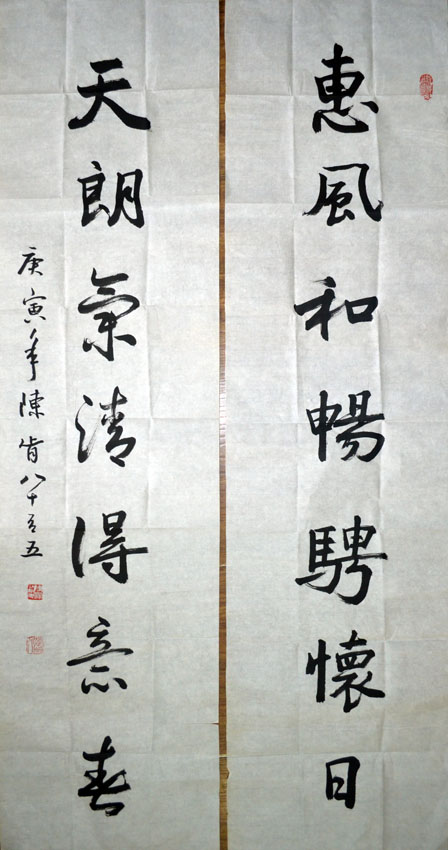 惠風和暢騁懷日
天朗氣清得意春
庚寅年陳肯八十有五